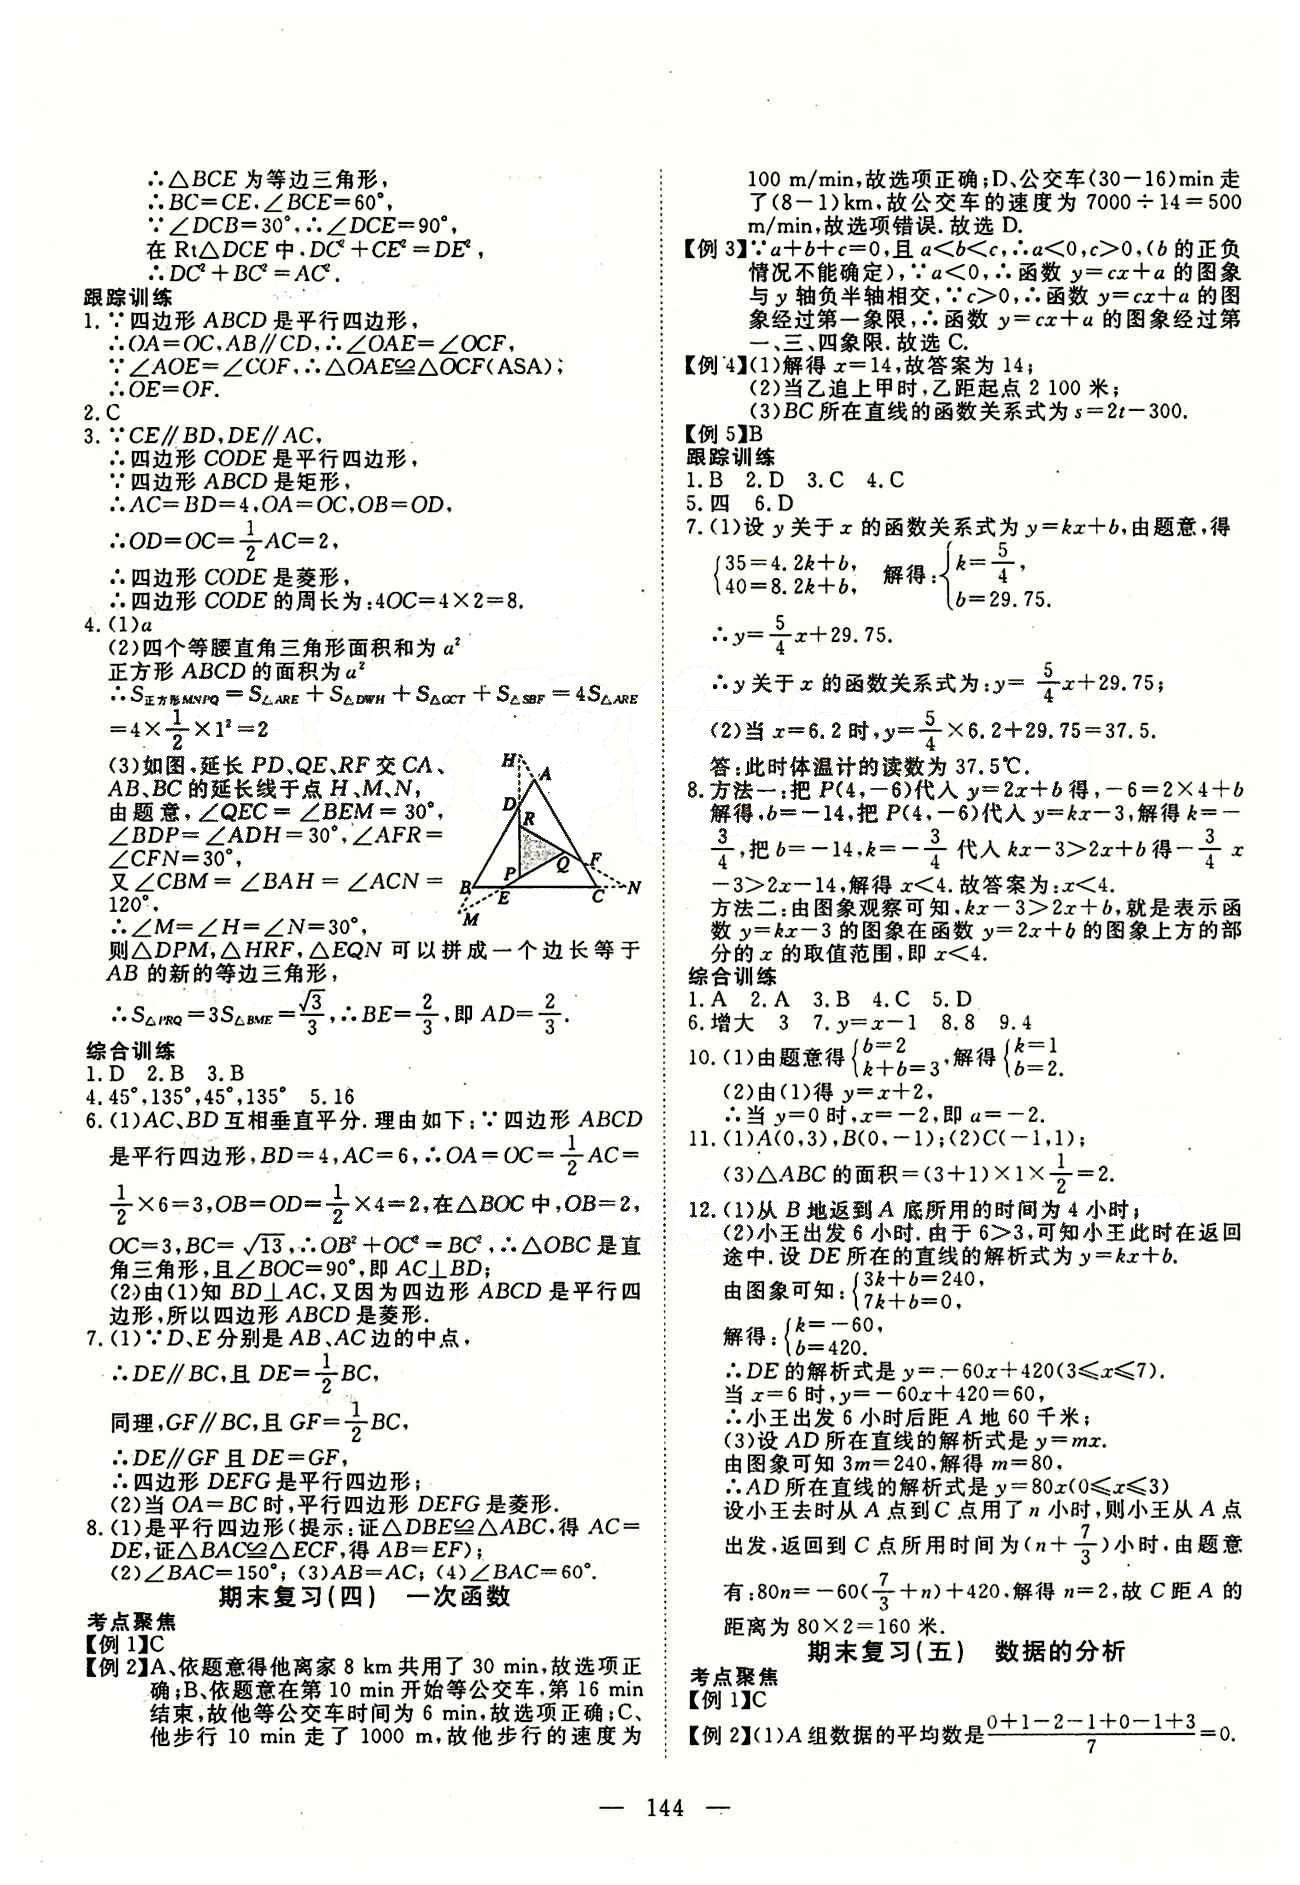 ∴△BCE 为等边三角形，
∴BC=CE，∠BCE=60°，
∵∠DCB=30°，∴∠DCE=90°，
在 Rt△DCE 中，DC²+CE²=DE²，
∴DC²+BC²=AC².
跟踪训练
1. ∵四边形 ABCD 是平行四边形，
∴OA=OC，AB∥CD，∴∠OAE=∠OCF，
∵∠AOE=∠COF，∴△OAE≌△OCF(ASA)；
∴OE=OF.
2. C
3. ∵CE∥BD，DE∥AC，
∴四边形 CODE 是平行四边形，
∵四边形 ABCD 是矩形，
∴AC=BD=4，OA=OC，OB=OD，
∴OD=OC=1/2 AC=2，
∴四边形 CODE 是菱形，
∴四边形 CODE 的周长为:4OC=4×2=8.
4. (1)a
(2)四个等腰直角三角形面积和为 a²
正方形 ABCD 的面积为 a²
∴S正方形MNPQ=S△ARE+S△DWH+S△GCT+S△SBF=4S△ARE
=4×1/2×1²=2
(3)如图，延长 PD、QE、RF 交 CA、
AB、BC 的延长线于点 H、M、N，
由题意，∠QEC=∠BEM=30°，
∠BDP=∠ADH=30°，∠AFR=
∠CFN=30°，
又∠CBM=∠BAH=∠ACN=
120°，
∴∠M=∠H=∠N=30°，
H
A
D
R
Q
F
P
B
E
C
N
M
则△DPM，△HRF，△EQN 可以拼成一个边长等于
AB 的新的等边三角形，
∴S△PRQ=3S△BME=√3/3，∴BE=2/3，即 AD=2/3.
综合训练
1. D 2. B 3. B
4. 45°，135°，45°，135° 5. 16
6. (1)AC、BD 互相垂直平分. 理由如下：∵四边形 ABCD
是平行四边形，BD=4，AC=6，∴OA=OC=1/2 AC=
1/2×6=3，OB=OD=1/2×4=2，在△BOC 中，OB=2，
OC=3，BC=√13，∴OB²+OC²=BC²，∴△OBC 是直
角三角形，且∠BOC=90°，即 AC⊥BD；
(2)由(1)知 BD⊥AC，又因为四边形 ABCD 是平行四
边形，所以四边形 ABCD 是菱形.
7. (1)∵D、E 分别是 AB、AC 边的中点，
∴DE∥BC，且 DE=1/2 BC，
同理，GF∥BC，且 GF=1/2 BC，
∴DE∥GF 且 DE=GF，
∴四边形 DEFG 是平行四边形；
(2)当 OA=BC 时，平行四边形 DEFG 是菱形.
8. (1)是平行四边形(提示:证△DBE≌△ABC，得 AC=
DE，证△BAC≌△ECF，得 AB=EF)；
(2)∠BAC=150°；(3)AB=AC；(4)∠BAC=60°.
期末复习(四) 一次函数
考点聚焦
【例 1】C
【例 2】A、依题意得他离家 8 km 共用了 30 min，故选项正
确；B、依题意在第 10 min 开始等公交车，第 16 min
结束，故他等公交车时间为 6 min，故选项正确；C、
他步行 10 min 走了 1000 m，故他步行的速度为
100 m/min，故选项正确；D、公交车(30－16)min 走
了(8－1)km，故公交车的速度为 7000÷14=500
m/min，故选项错误. 故选 D.
【例 3】∵a+b+c=0，且 a<b<c，∴a<0，c>0，(b 的正负
情况不能确定)，∵a<0，∴函数 y=cx+a 的图象
与 y 轴负半轴相交，∵c>0，∴函数 y=cx+a 的图
象经过第一象限，∴函数 y=cx+a 的图象经过第
一、三、四象限. 故选 C.
【例 4】(1)解得 x=14，故答案为 14；
(2)当乙追上甲时，乙距起点 2 100 米；
(3)BC 所在直线的函数关系式为 s=2t－300.
【例 5】B
跟踪训练
1. B 2. D 3. C 4. C
5. 四 6. D
7. (1)设 y 关于 x 的函数关系式为 y=kx+b，由题意，得
{35=4.2k+b, 40=8.2k+b, 解得:{k=5/4, b=29.75.
∴y=5/4 x+29.75.
∴y 关于 x 的函数关系式为:y=5/4 x+29.75；
(2)当 x=6.2 时，y=5/4×6.2+29.75=37.5.
答：此时体温计的读数为 37.5℃.
8. 方法一：把 P(4，－6)代入 y=2x+b 得，－6=2×4+b
解得，b=－14，把 P(4，－6)代入 y=kx－3，解得 k=－
3/4，把 b=－14，k=－3/4 代入 kx－3>2x+b 得－3/4 x
－3>2x－14，解得 x<4. 故答案为：x<4.
方法二：由图象观察可知，kx－3>2x+b，就是表示函
数 y=kx－3 的图象在函数 y=2x+b 的图象上方的部
分的 x 的取值范围，即 x<4.
综合训练
1. A 2. A 3. B 4. C 5. D
6. 增大 3 7. y=x－1 8. 8 9. 4
10. (1)由题意得{b=2 k+b=3，解得{k=1 b=2.
(2)由(1)得 y=x+2，
∴当 y=0 时，x=－2，即 a=－2.
11. (1)A(0，3)，B(0，－1)；(2)C(－1，1)；
(3)△ABC 的面积=(3+1)×1×1/2=2.
12. (1)从 B 地返到 A 底所用的时间为 4 小时；
(2)小王出发 6 小时. 由于 6>3，可知小王此时在返回
途中. 设 DE 所在的直线的解析式为 y=kx+b.
由图象可知：{3k+b=240, 7k+b=0,
解得：{k=－60, b=420.
∴DE 的解析式是 y=－60x+420(3≤x≤7).
当 x=6 时，y=－60x+420=60，
∴小王出发 6 小时后距 A 地 60 千米；
(3)设 AD 所在直线的解析式是 y=mx.
由图象可知 3m=240，解得 m=80，
∴AD 所在直线的解析式是 y=80x(0≤x≤3)
设小王去时从 A 点到 C 点用了 n 小时，则小王从 A 点
出发，返回到 C 点所用时间为(n+7/3)小时，由题意
有：80n=－60(7/3+n)+420，解得 n=2，故 C 距 A 的
距离为 80×2=160 米.
期末复习(五) 数据的分析
考点聚焦
【例 1】C
【例 2】(1)A 组数据的平均数是(0+1－2－1+0－1+3)/7=0.
— 144 —